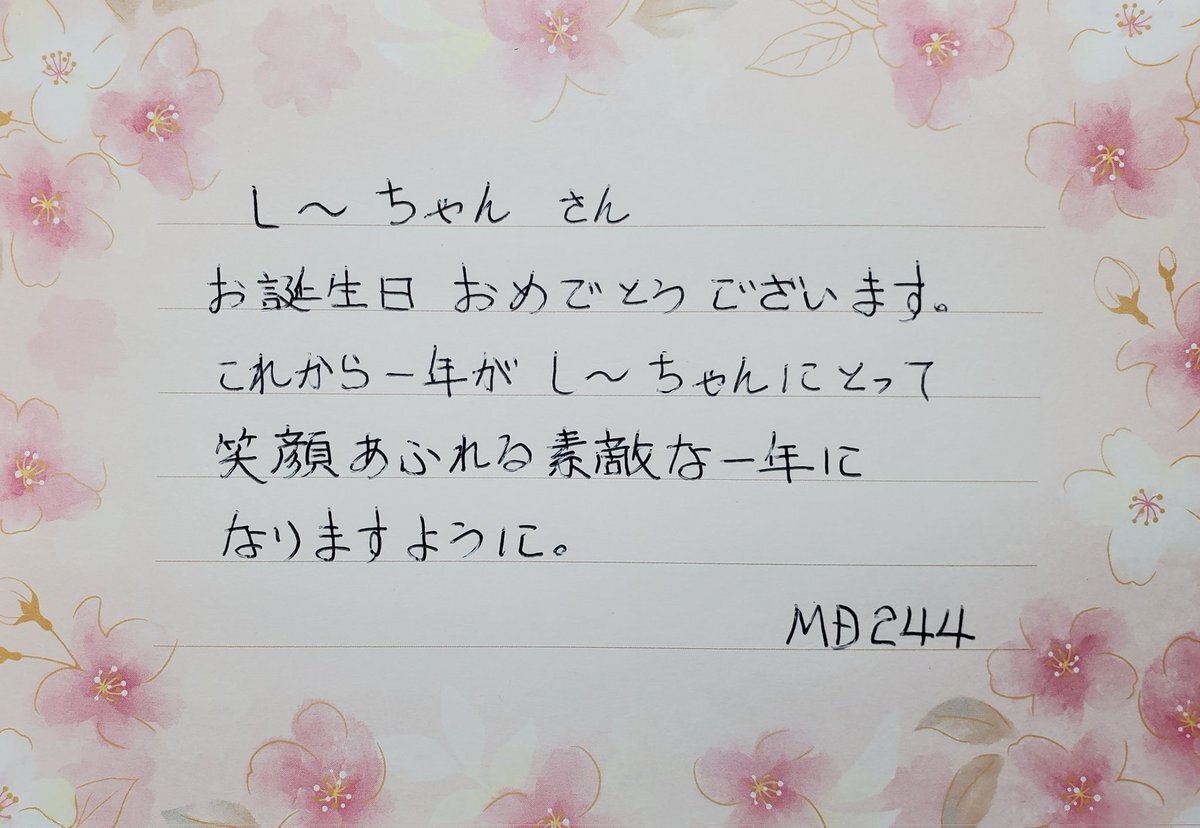 し〜ちゃん さん
お誕生日 おめでとうございます。
これから一年が し〜ちゃんにとって
笑顔あふれる素敵な一年に
なりますように。
MD244